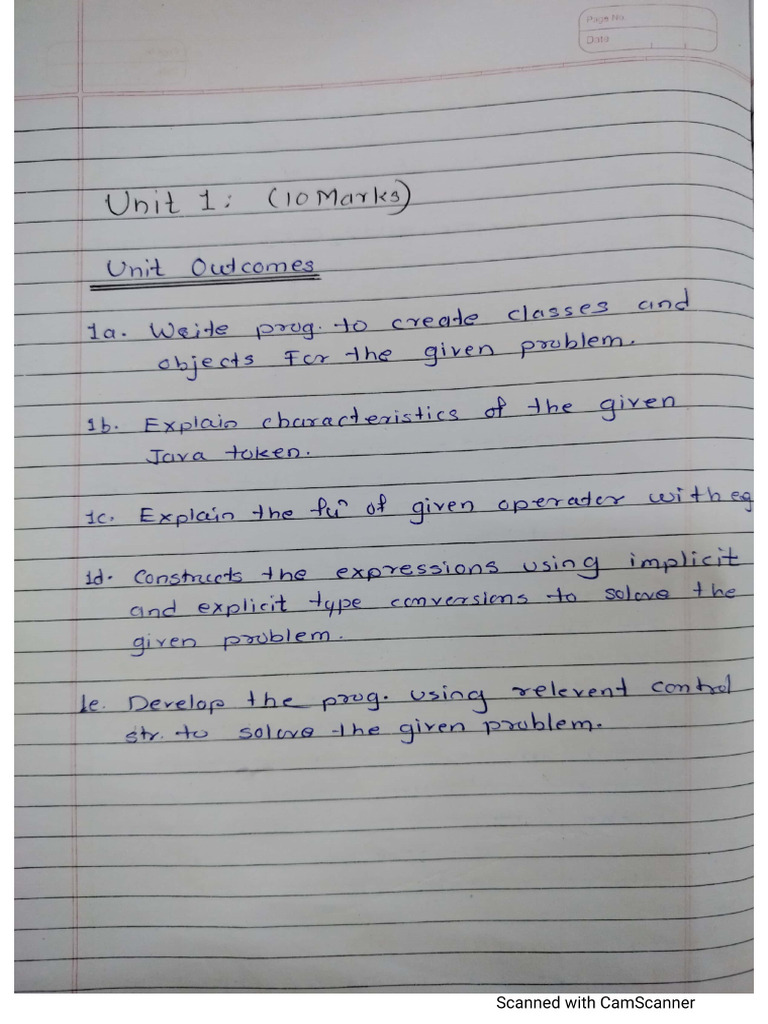 Page No.
Date
Unit 1: (10 Marks)
Unit Outcomes
1a. Write prog. to create classes and
objects For the given problem.
1b. Explain characteristics of the given
Java token.
1c. Explain the fun of given operator with eg
1d. Constructs the expressions using implicit
and explicit type conversions to solove the
given problem.
1e. Develop the prog. using relevent control
str. to solove the given problem.
Scanned with CamScanner